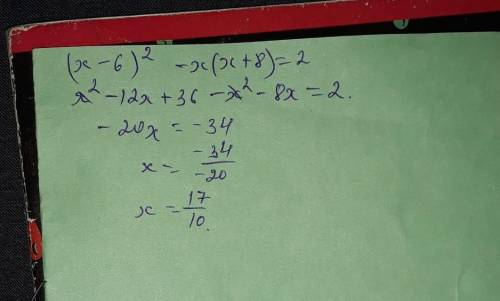 (x - 6)² - x(x + 8) = 2
x² - 12x + 36 - x² - 8x = 2.
- 20x = - 34
x = -34/-20
x = 17/10.